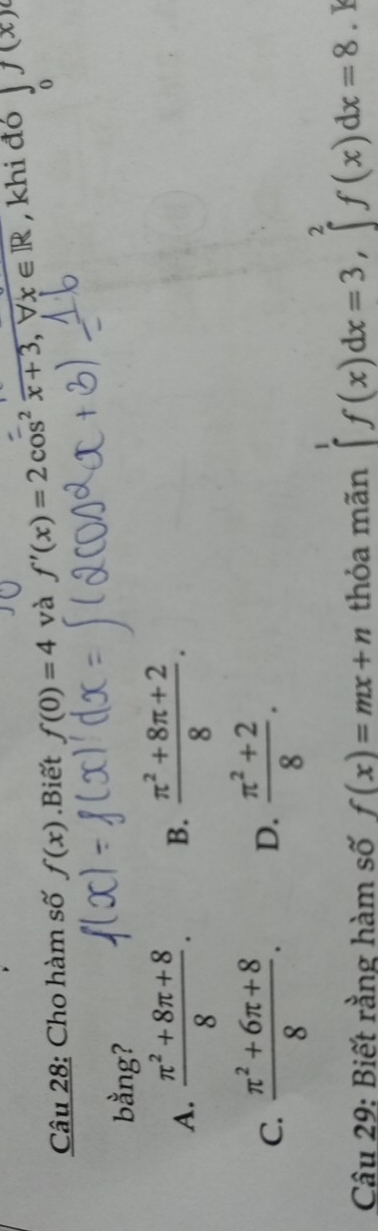 Câu 28: Cho hàm số f(x).Biết f(0) = 4 và f'(x) = 2cos² x + 3, ∀x ∈ ℝ, khi đó ∫₀ f(x)
f(x) = f(x)' dx = ∫(2cos²x + 3) =
bằng?
A. (π² + 8π + 8)/8.
B. (π² + 8π + 2)/8.
C. (π² + 6π + 8)/8.
D. (π² + 2)/8.
Câu 29: Biết rằng hàm số f(x) = mx + n thỏa mãn ∫¹ f(x)dx = 3, ∫² f(x)dx = 8.